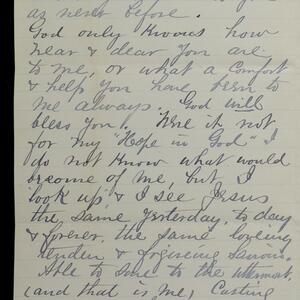 as never before.
God only knows how
near & dear you are
to me, or what a comfort
& help you have been to
me always. God will
bless you. Were it not
for my "Hope in God" I
do not know what would
become of me, but, I
"look up" & I see Jesus
the same yesterday, to day
& forever. the same loving
tender & forgiving Savior.
Able to save to the uttermost.
(and that is me) Casting